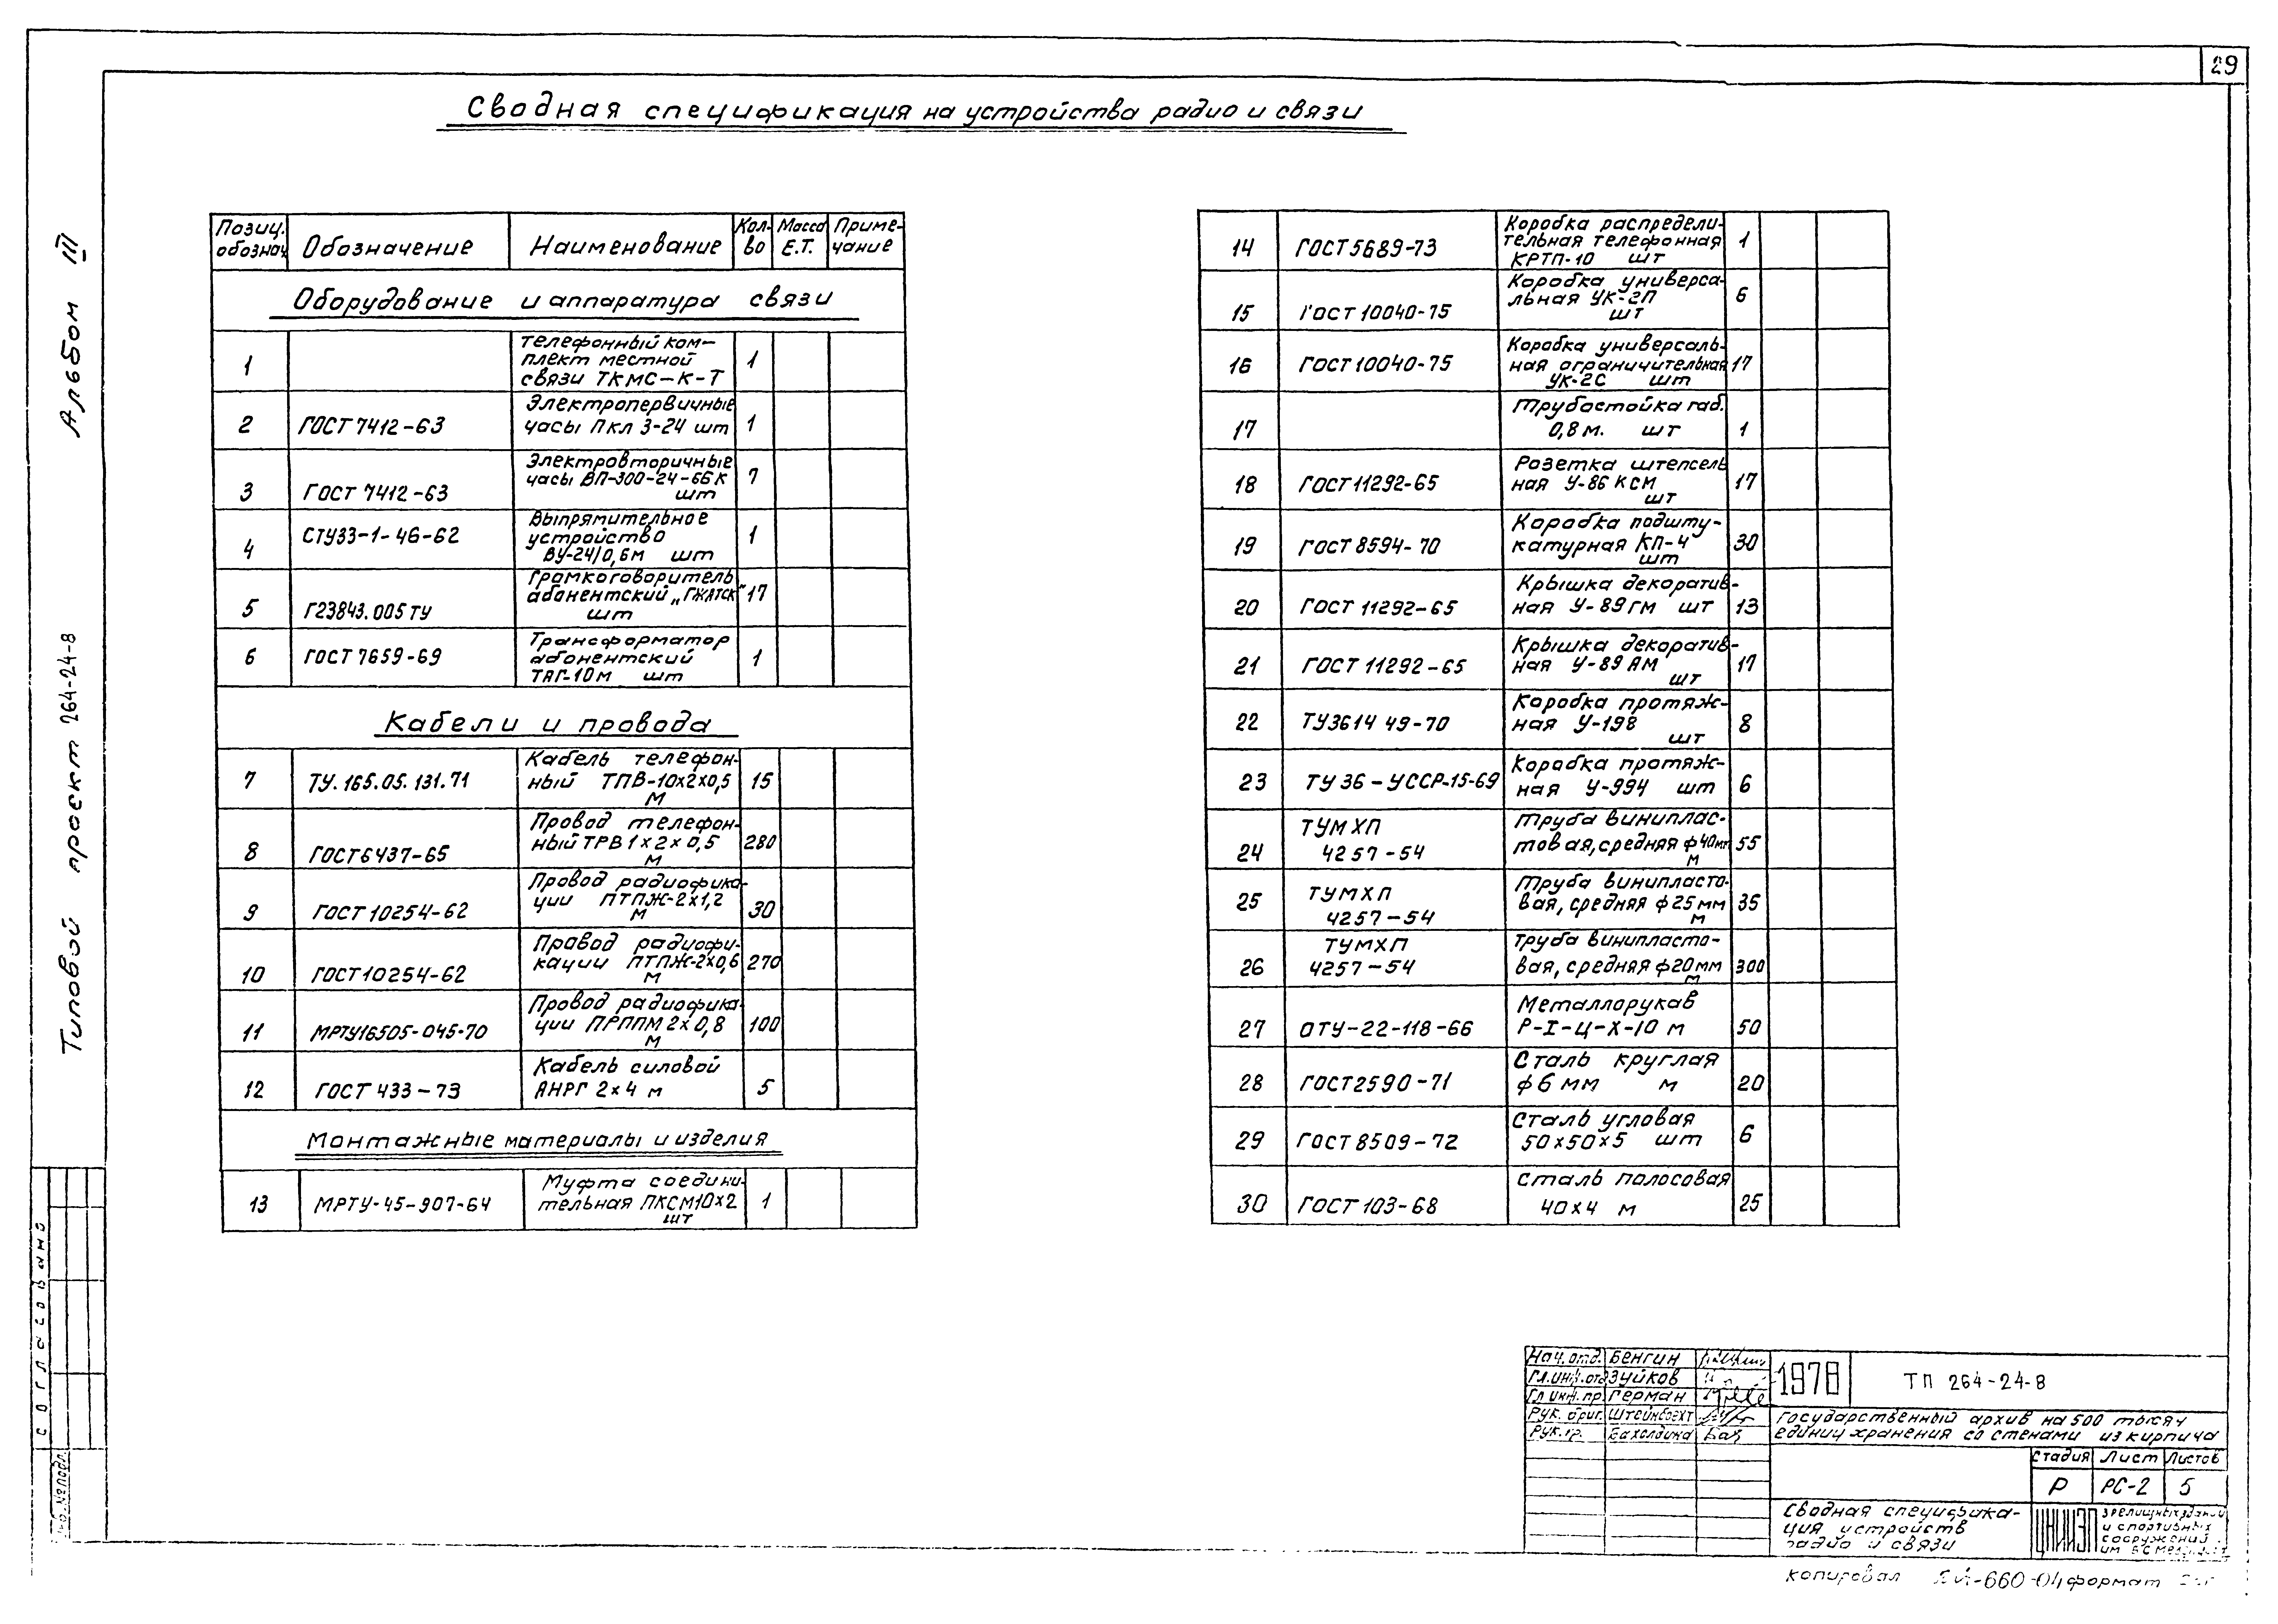 29
Сводная спецификация на устройства радио и связи
Альбом III
Типовой проект 264-24-8
Позиц. обознач. Обозначение Наименование Кол-во Масса Е.Т. Примечание
Оборудование и аппаратура связи
1 Телефонный ком-
плект местной
связи ТКМС-К-Т 1
2 ГОСТ 7412-63 Электропервичные
часы Пкл 3-24 шт 1
3 ГОСТ 7412-63 Электровторичные
часы ВП-300-24-66К
шт 7
4 СТУ33-1-46-62 Выпрямительное
устройство
ВУ-24/0,6м шт 1
5 Г23843.005ТУ Громкоговоритель
абонентский „ГЖАТСК"
шт 17
6 ГОСТ 7659-69 Трансформатор
абонентский
ТАГ-10м шт 1
Кабели и провода
7 ТУ.165.05.131.71 Кабель телефон-
ный ТПВ-10х2х0,5
м 15
8 ГОСТ6437-65 Провод телефон-
ный ТРВ 1х2х0,5
м 280
9 ГОСТ 10254-62 Провод радиофика-
ции ПТПЖ-2х1,2
м 30
10 ГОСТ10254-62 Провод радиофи-
кации ПТПЖ-2х0,6
м 270
11 МРТУ16505-045-70 Провод радиофика-
ции ПРППМ 2х0,8
м 100
12 ГОСТ 433-73 Кабель силовой
АНРГ 2х4 м 5
Монтажные материалы и изделия
13 МРТУ-45-907-64 Муфта соедини-
тельная ПКСМ10х2
шт 1
14 ГОСТ5689-73 Коробка распредели-
тельная телефонная
КРТП-10 шт 1
15 ГОСТ 10040-75 Коробка универса-
льная УК-2П
шт 6
16 ГОСТ10040-75 Коробка универсаль-
ная ограничительная
УК-2С шт 17
17 Трубостойка габ.
0,8 м. шт 1
18 ГОСТ11292-65 Розетка штепсель
ная У-86 КСМ
шт 17
19 ГОСТ8594-70 Коробка подшту-
катурная КП-4
шт 30
20 ГОСТ 11292-65 Крышка декоратив-
ная У-89ГМ шт 13
21 ГОСТ 11292-65 Крышка декоратив-
ная У-89 АМ
шт 17
22 ТУ3614 49-70 Коробка протяж-
ная У-198
шт 8
23 ТУ 36-УССР-15-69 Коробка протяж-
ная У-994 шт 6
24 ТУМХП
4257-54 Труба виниплас-
товая, средняя ф40мм
м 55
25 ТУМХП
4257-54 Труба винипласто-
вая, средняя ф25мм
м 35
26 ТУМХП
4257-54 Труба винипласто-
вая, средняя ф20мм
м 300
27 ОТУ-22-118-66 Металлорукав
Р-I-Ц-Х-10 м 50
28 ГОСТ2590-71 Сталь круглая
ф6мм м 20
29 ГОСТ8509-72 Сталь угловая
50х50х5 шт 6
30 ГОСТ 103-68 Сталь полосовая
40х4 м 25
Согласовано
Инв.№подл.
Нач.отд. Бенгин
Гл.инж.отд Зуйков
Гл инж.пр. Герман
Рук. бриг. Штейнбрехт
Рук.гр. Бахолдина
1978
ТП 264-24-8
Государственный архив на 500 тысяч
единиц хранения со стенами из кирпича
Стадия Лист Листов
Р РС-2 5
Сводная специфика-
ция устройств
радио и связи
ЦНИИЭП
зрелищных зданий
и спортивных
сооружений
им Б.С.
копировал
-660-04 формат